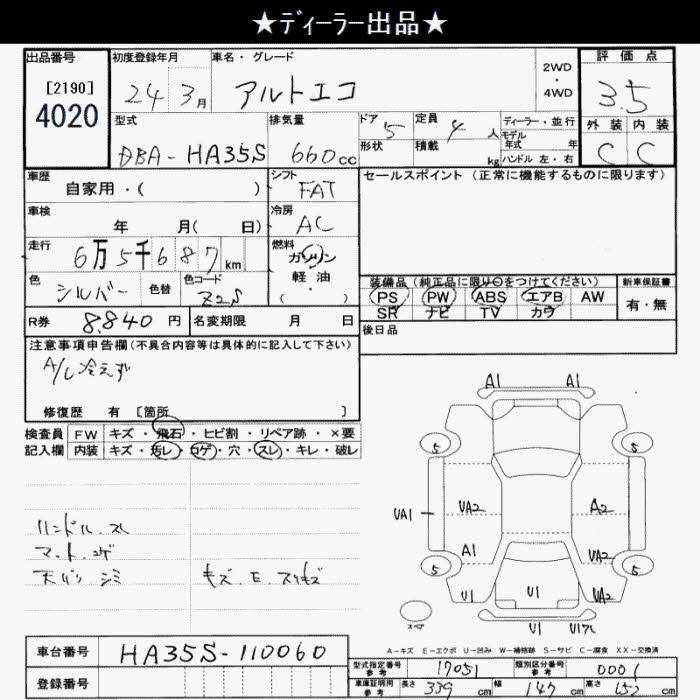 ★ディーラー出品★
出品番号 初度登録年月 車名・グレード 評価点
[2190]
4020
24 3月 アルトエコ 2WD・4WD 3.5
型式 排気量 ドア 5 定員 4人 ディーラー・並行 外装 内装
DBA-HA35S 660cc 形状 積載 kg モデル年式 年 C C
ハンドル 左・右
車歴 シフト セールスポイント (正常に機能するものに限ります)
自家用・( ) FAT
車検 冷房
年 月( 日) AC
走行 燃料
6万5千687km ガソリン
色 色替 色コード 軽・油
シルバー Z2S ( )
装備品(純正品に限り○をつけてください) 新車保証書
PS PW ABS エアB AW 有・無
SR ナビ TV カワ
R券 8.840円 名変期限 月 日 後日品
注意事項申告欄(不具合内容等は具体的に記入して下さい)
A/C冷えず
修復歴 有 [箇所 ]
検査員 FW キズ・飛石・ヒビ割・リペア跡・×要
記入欄 内装 キズ・汚レ・コゲ・穴・スレ・キレ・破レ
ハンドル スレ
マット コゲ
天バリ シミ キズ.E.スリキズ
A1 A1
5 5
UA1 UA2 A2
A1 UA2
5 5
U1 U1 UA2
スペア U1
A-キズ E-エクボ U-凹み W-補修跡 S-サビ C-腐食 XX-交換済
車台番号 HA35S-110060
登録番号
型式指定番号 参考 17051 類別区分番号 参考 0001
車庫証明用 参考 長さ 339cm 幅 147cm 高さ 152cm